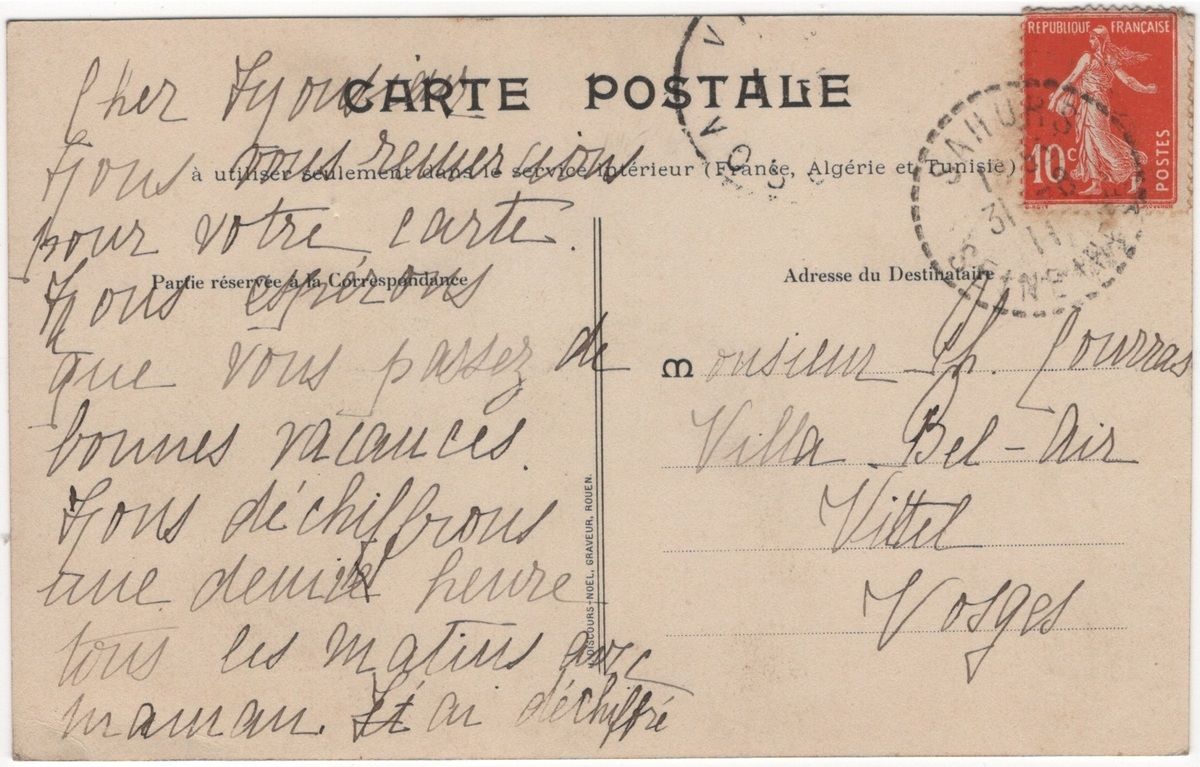 CARTE POSTALE
à utiliser seulement dans le service intérieur (France, Algérie et Tunisie)
Partie réservée à la Correspondance
Adresse du Destinataire
REPUBLIQUE FRANÇAISE
10 c
POSTES
SAHURS
31
11
Cher Monsieur
Nous vous remercions
pour votre carte.
Nous espérons
que vous passez de
bonnes vacances.
Nous déchiffrons
une demie heure
tous les matins avec
maman. J'ai déchiffré
Monsieur Ch. Courras
Villa Bel-Air
Vittel
Vosges
NOEL, GRAVEUR, ROUEN